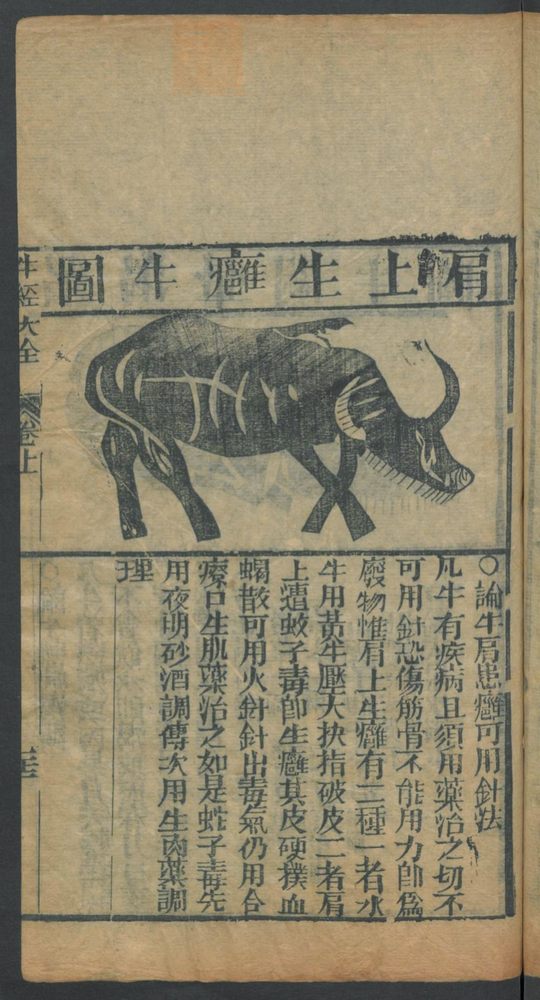 肩上生癰牛圖
○論牛肩患癰可用針法
凡牛有疾病且須用藥治之切不
可用針恐傷筋骨不能用力即為
廢物惟肩上生癰有二種一者水
牛用黃牛壓大抉指破皮二者肩
上遭蚊子毒即生癰其皮硬撲血
蝎散可用火針針出毒氣仍用合
瘡口生肌藥治之如是蚊子毒先
用夜明砂酒調傅次用生肉藥調
理
牛經大全 卷上